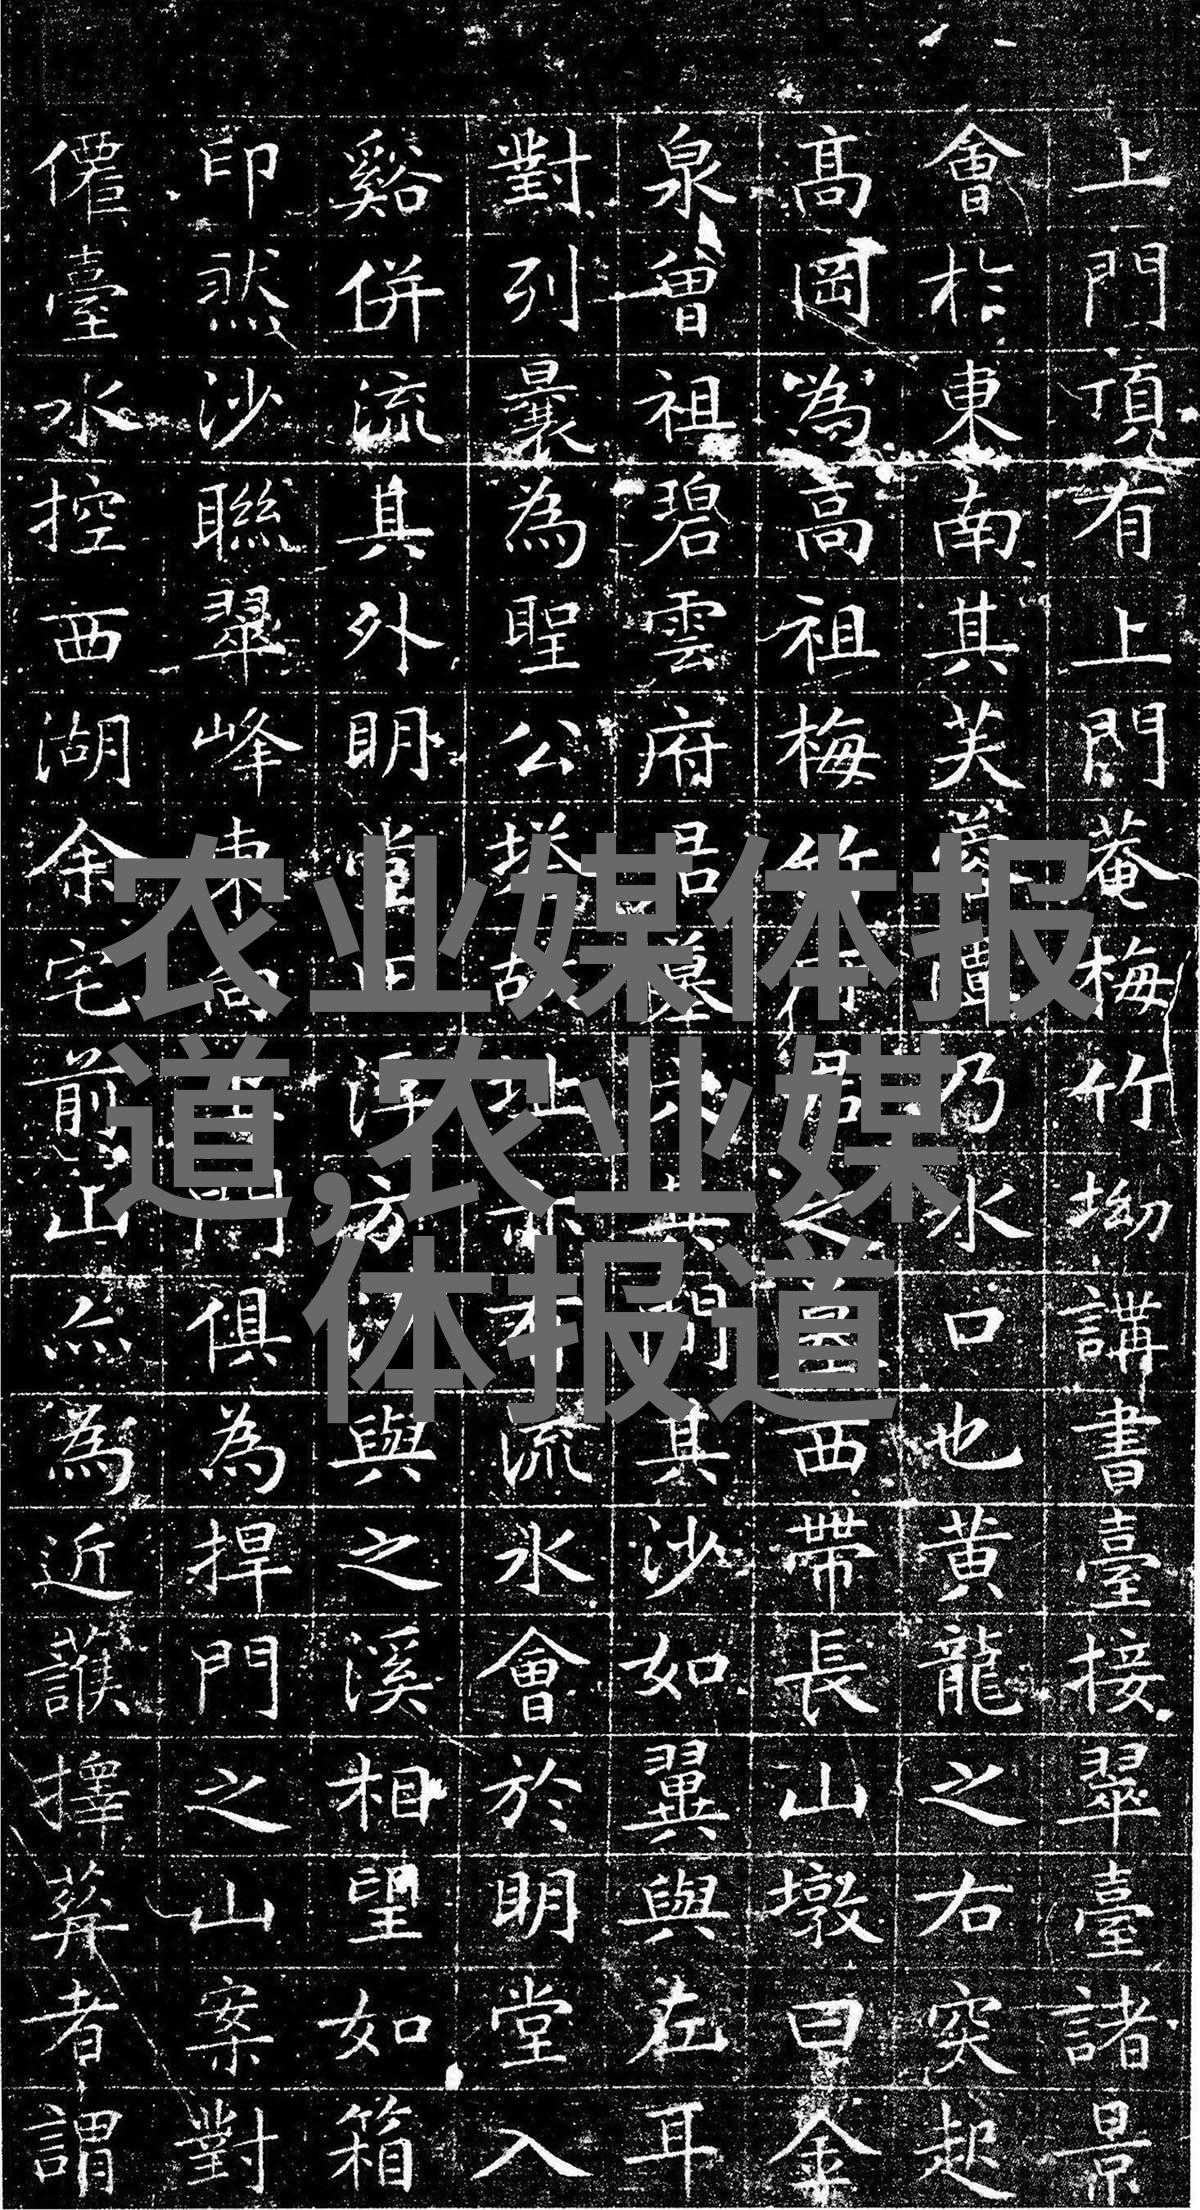 上門頂有上門菴梅竹坳講書臺接翠臺諸景
會於東南其芙蓉乃水口也黄龍之右突起
髙岡為高祖梅竹府君之墓西帶長山墩曰金
泉曾祖碧雲府君墓其間其沙如翼與左耳
對列曩為聖公塔故址亦有流水會於明堂入
谿併流其外明堂浮方與之溪相望如箱
印然沙聯翠峰東向門俱為捍門之山案對
僊臺水控西湖余宅前山亦為近護擇葬者謂
农业媒体报
道,农业媒
体报道